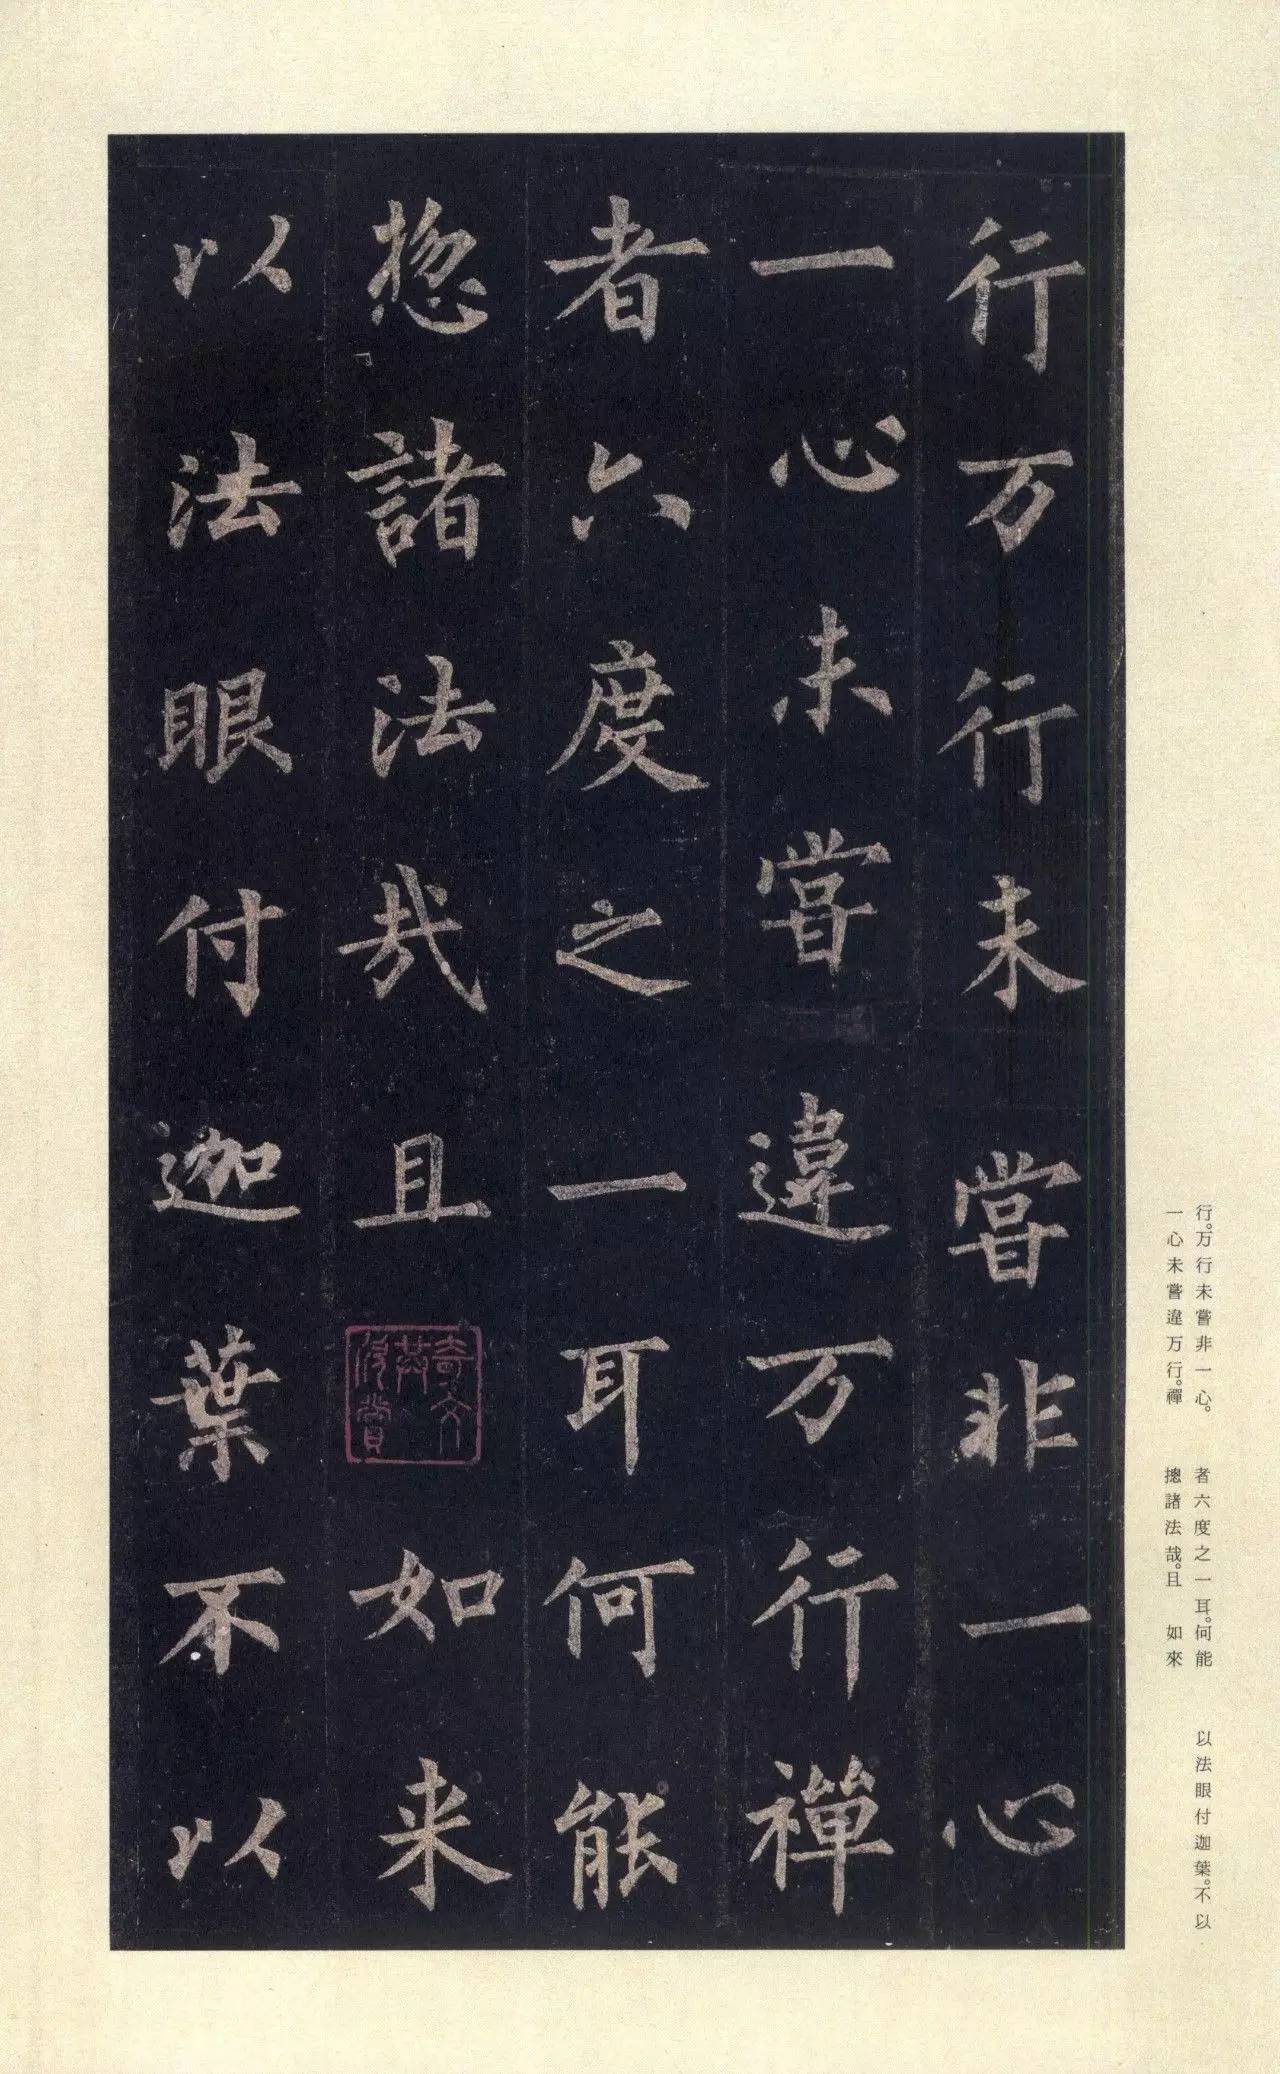 行万行未嘗非一心
一心未嘗違万行禪
者六度之一耳何能
揔諸法哉且如来
以法眼付迦葉不以
奇文共欣賞
行。万行未嘗非一心。
一心未嘗違万行。禪
者六度之一耳。何能
摠諸法哉。且如來
以法眼付迦葉。不以